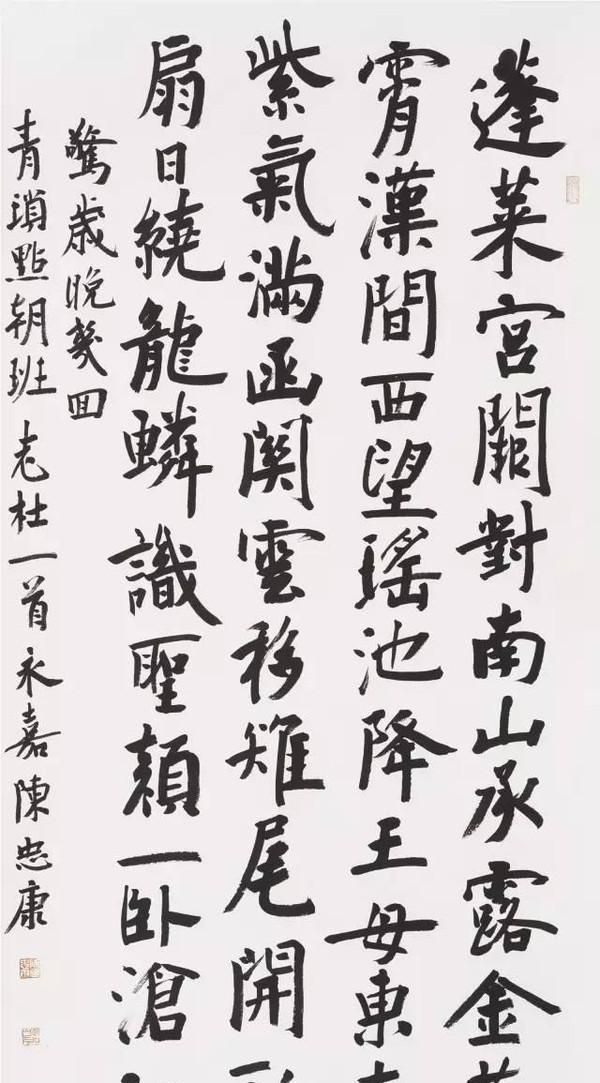 蓬莱宫闕對南山承露金
霄漢間西望瑶池降王母東
紫氣滿函関雲移雉尾開
扇日繞龍鱗識聖顔一卧滄
驚歲晚幾回
青瑣點朝班老杜一首永嘉陳忠康